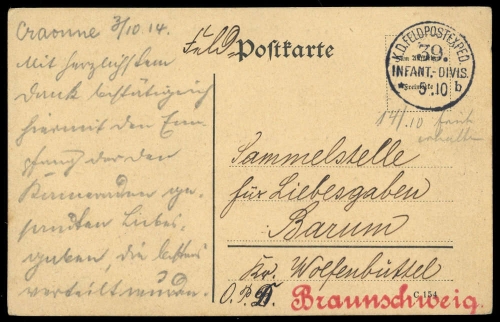 Craonne 3/10 14.
Mit herzlichstem
Dank bestätige ich
hiermit den Em-
pfang der den
Kameraden ge-
sandten Liebes-
gaben, die bestens
verteilt wurden.
Feld-Postkarte
K.D. FELDPOSTEXPED.
39.
INFANT.-DIVIS.
* 5.10 b
14/.10
erhalten
Sammelstelle
für Liebesgaben
Barum
Kr. Wolfenbüttel
O. P. D. Braunschweig.
C 154